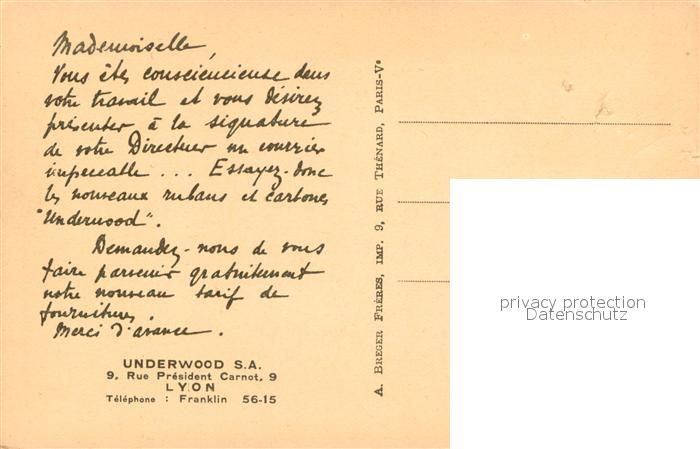 Mademoiselle,
Vous êtes consciencieuse dans
votre travail et vous désirez
présenter à la signature
de votre Directeur un courrier
impeccable ... Essayez-donc
les nouveaux rubans et carbones
"Underwood".
Demandez-nous de vous
faire parvenir gratuitement
notre nouveau tarif de
fournitures.
Merci d'avance.
UNDERWOOD S.A.
9, Rue Président Carnot, 9
LYON
Téléphone : Franklin 56-15
A. BREGER FRÈRES, IMP. 9, RUE THÉNARD, PARIS-Vᵉ
privacy protection
Datenschutz